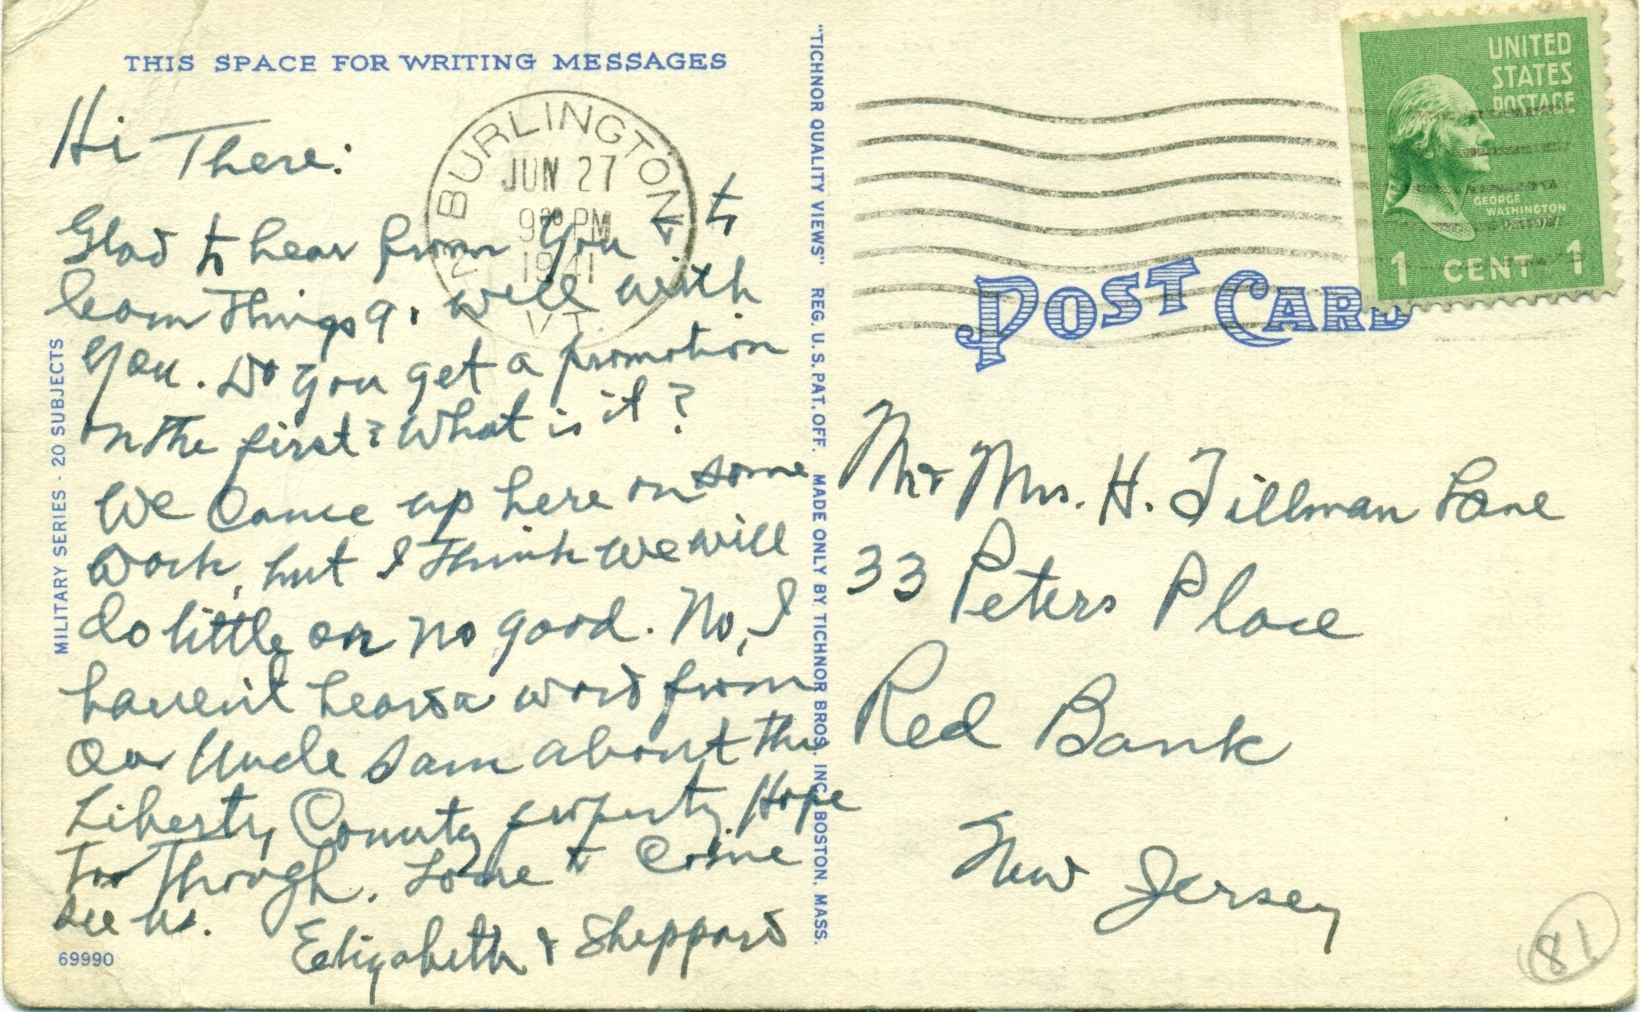 THIS SPACE FOR WRITING MESSAGES
Hi There:
Glad to hear from you & to
learn things q. well with
you. Do you get a promotion
on the first? What is it?
We came up here on some
work, but I think we will
do little or no good. No, I
haven't heard a word from
our Uncle Sam about the
Liberty County property. Hope
to though. Love & come
see us.
Elizabeth & Sheppard
69990
MILITARY SERIES - 20 SUBJECTS
BURLINGTON
JUN 27
9 PM
1941
VT.
"TICHNOR QUALITY VIEWS" REG. U.S. PAT. OFF. MADE ONLY BY TICHNOR BROS. INC. BOSTON, MASS.
UNITED
STATES
POSTAGE
GEORGE
WASHINGTON
1 CENT 1
POST CARD
Mr & Mrs. H. Tillman Lane
33 Peters Place
Red Bank
New Jersey
81